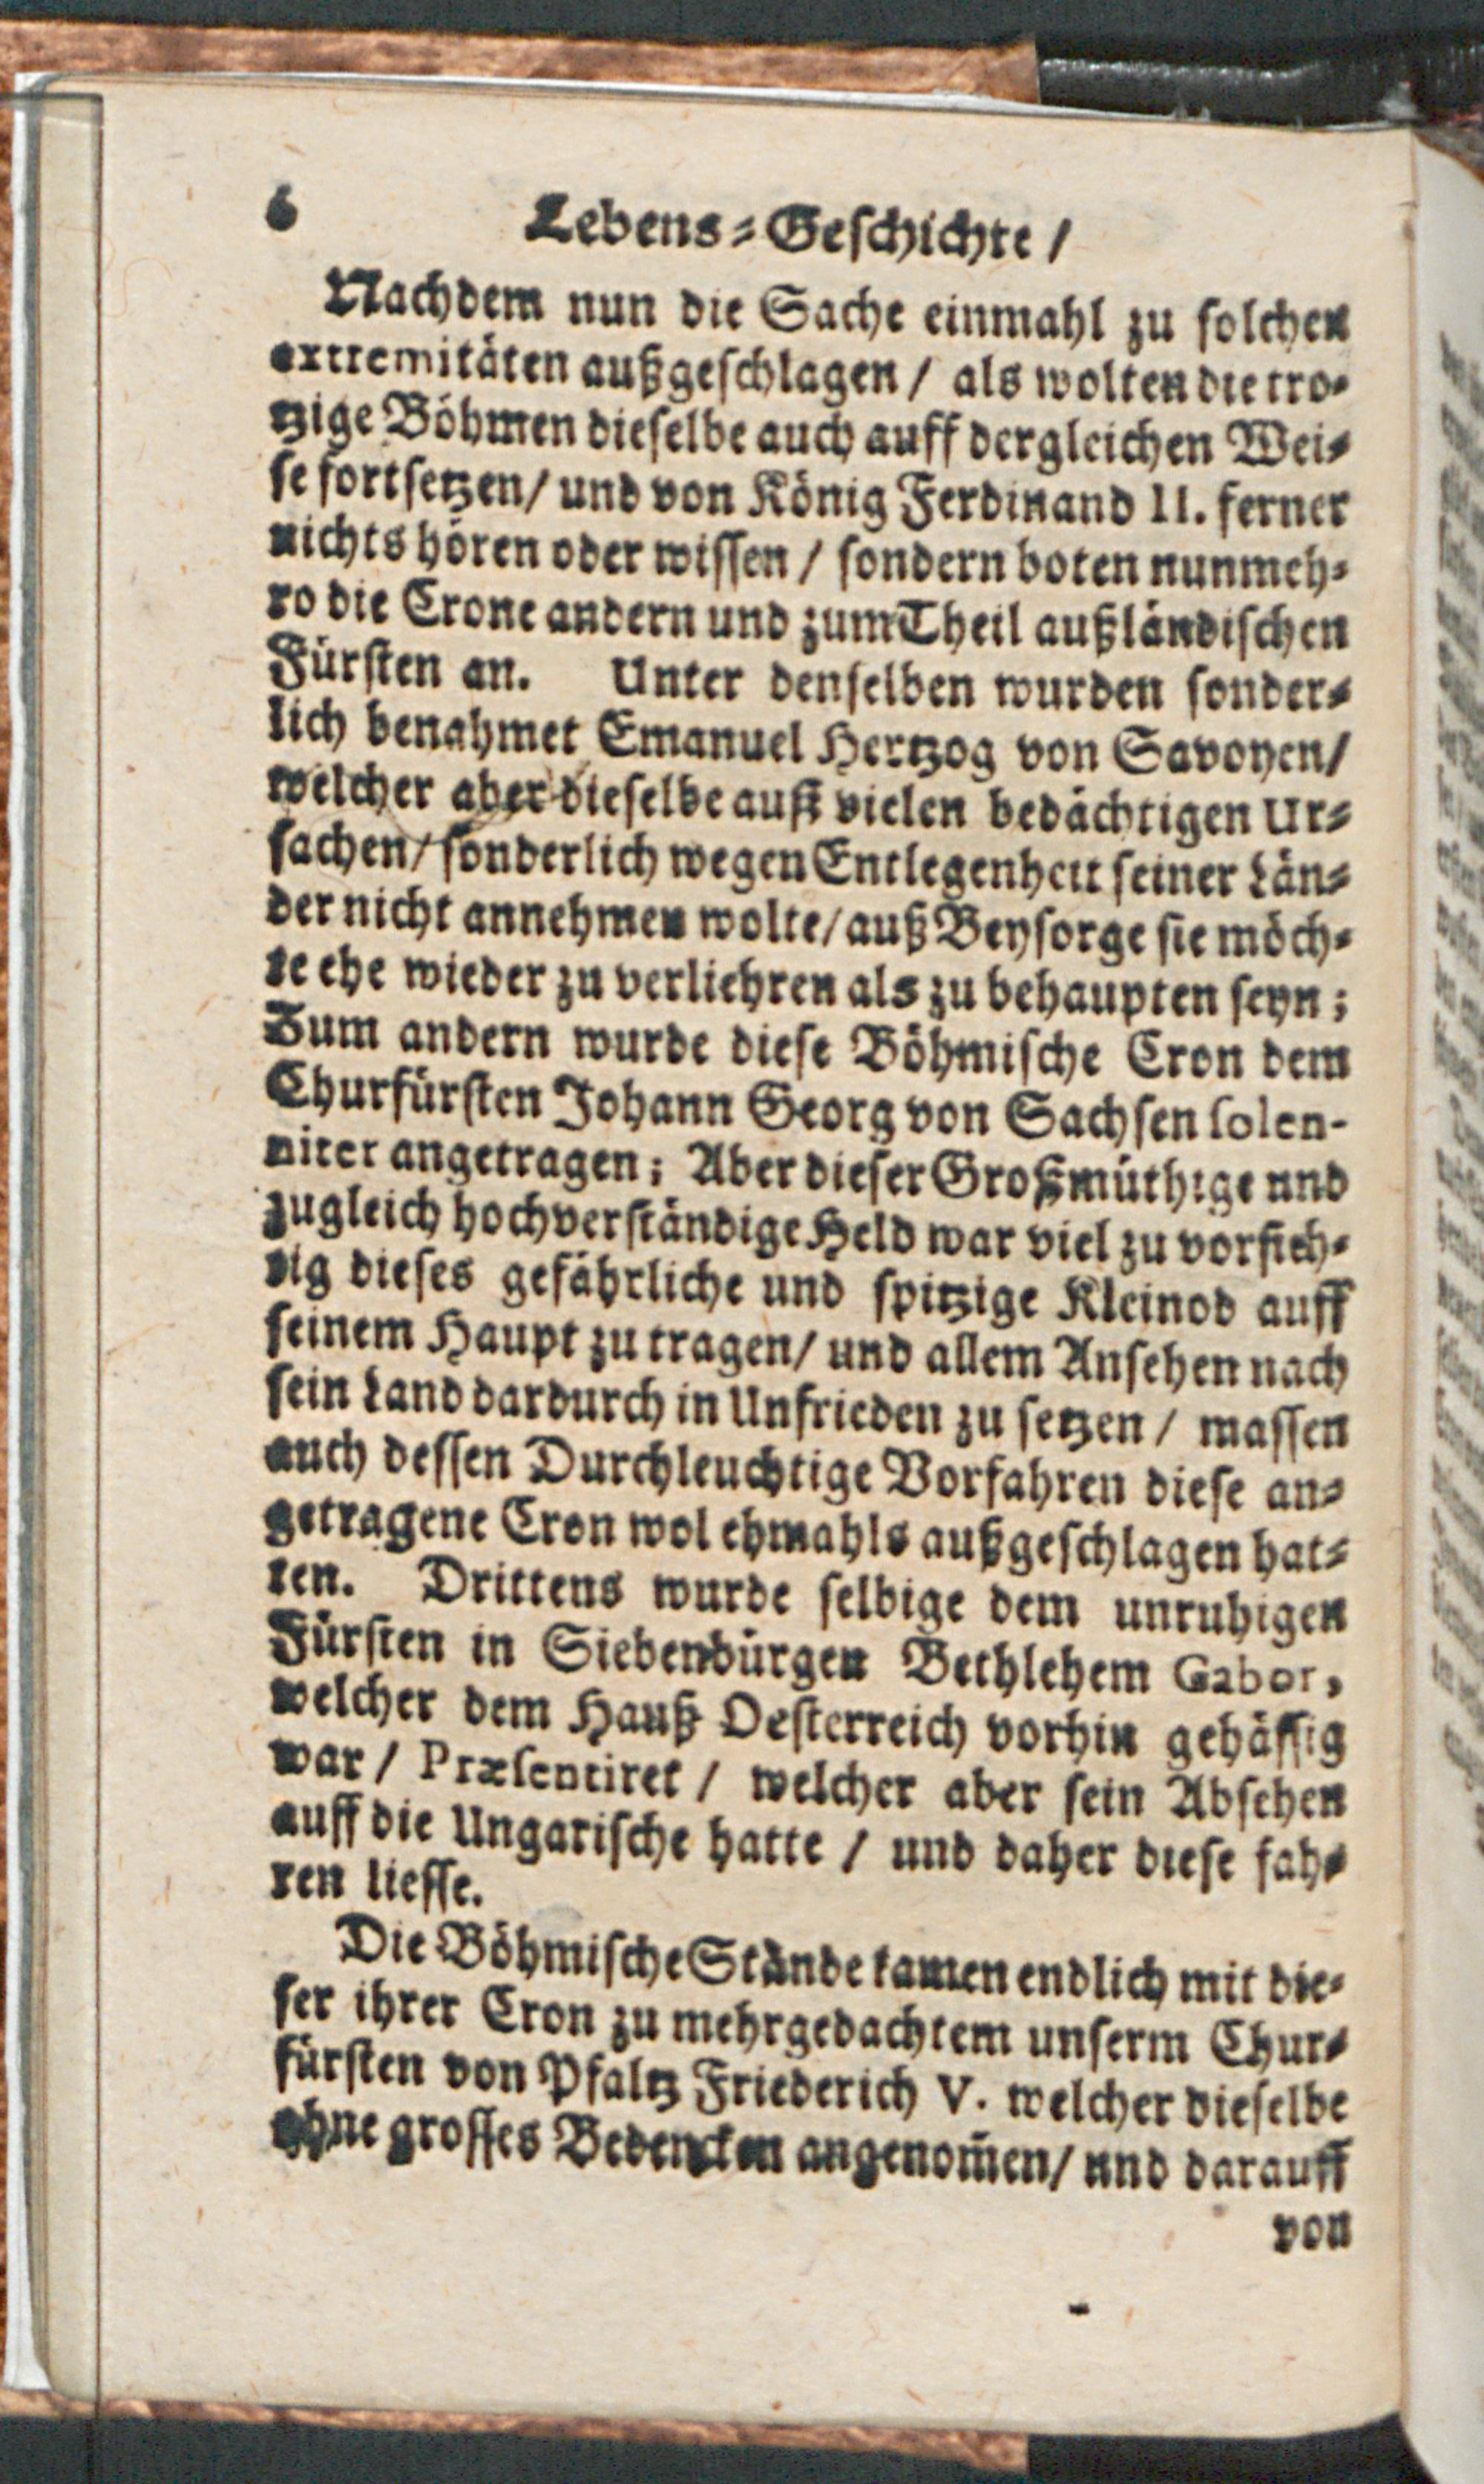 6 Lebens-Geschichte /
Nachdem nun die Sache einmahl zu solchen
extremitäten außgeschlagen / als wolten die tro-
tzige Böhmen dieselbe auch auff dergleichen Wei-
se fortsetzen / und von König Ferdinand II. ferner
nichts hören oder wissen / sondern boten nunmeh-
ro die Crone andern und zum Theil außländischen
Fürsten an. Unter denselben wurden sonder-
lich benahmet Emanuel Hertzog von Savoyen /
welcher aber dieselbe auß vielen bedächtigen Ur-
sachen / sonderlich wegen Entlegenheit seiner Län-
der nicht annehmen wolte / auß Beysorge sie möch-
te ehe wieder zu verliehren als zu behaupten seyn ;
Zum andern wurde diese Böhmische Cron dem
Churfürsten Johann Georg von Sachsen solen-
niter angetragen ; Aber dieser Großmüthige und
zugleich hochverständige Held war viel zu vorsich-
tig dieses gefährliche und spitzige Kleinod auff
seinem Haupt zu tragen / und allem Ansehen nach
sein Land dardurch in Unfrieden zu setzen / massen
auch dessen Durchleuchtige Vorfahren diese an-
getragene Cron wol ehmahls außgeschlagen hat-
ten. Drittens wurde selbige dem unruhigen
Fürsten in Siebenbürgen Bethlehem Gabor,
welcher dem Hauß Oesterreich vorhin gehässig
war / Præsentiret / welcher aber sein Absehen
auff die Ungarische hatte / und daher diese fah-
ren liesse.
Die Böhmische Stände kamen endlich mit die-
ser ihrer Cron zu mehrgedachtem unserm Chur-
fürsten von Pfaltz Friederich V. welcher dieselbe
ohne grosses Bedencken angenom̃en / und darauff
von